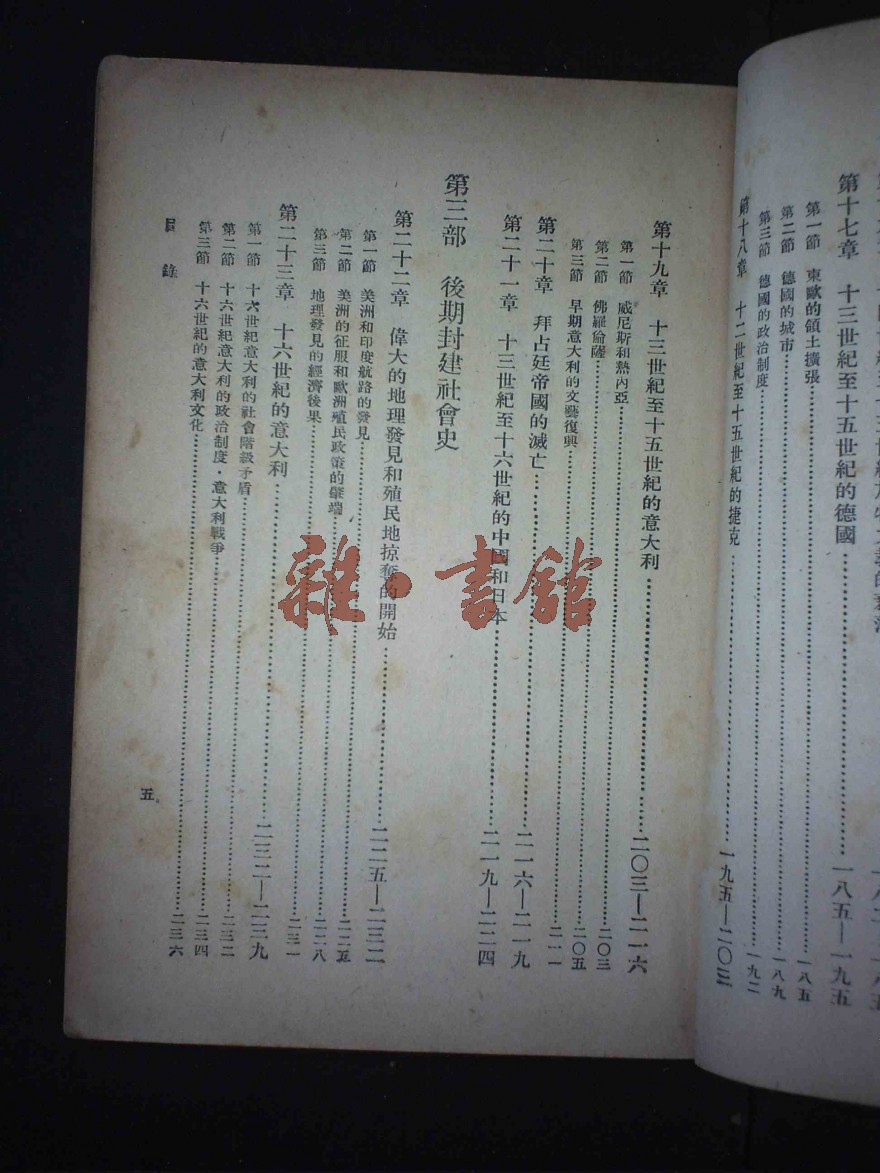 第十七章 十三世紀至十五世紀的德國……一八五—一九五
第一節 東歐的領土擴張……一八五
第二節 德國的城市……一八九
第三節 德國的政治制度……一九二
第十八章 十二世紀至十五世紀的捷克……一九五—二〇三
第十九章 十三世紀至十五世紀的意大利……二〇三—二一六
第一節 威尼斯和熱內亞……二〇三
第二節 佛羅倫薩……二〇五
第三節 早期意大利的文藝復興……二一一
第二十章 拜占廷帝國的滅亡……二一六—二一九
第二十一章 十三世紀至十六世紀的中國和日本……二一九—二二四
第三部 後期封建社會史
第二十二章 偉大的地理發見和殖民地掠奪的開始……二二五—二三二
第一節 美洲和印度航路的發見……二二五
第二節 美洲的征服和歐洲殖民政策的肇端……二二八
第三節 地理發見的經濟後果……二三一
第二十三章 十六世紀的意大利……二三二—二三九
第一節 十六世紀意大利的社會階級矛盾……二三二
第二節 十六世紀意大利的政治制度·意大利戰爭……二三四
第三節 十六世紀的意大利文化……二三六
目錄
五
雜·書館